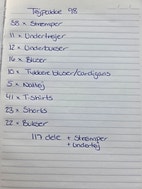 Tøjpakke 98
58 x Strømper
11 x Undertrøjer
12 x Underbukser
16 x Bluser
10 x Tykkere bluser/Cardigans
5 x Nattøj
41 x T-shirts
23 x Shorts
22 x Bukser
117 dele + Strømper
+ Undertøj